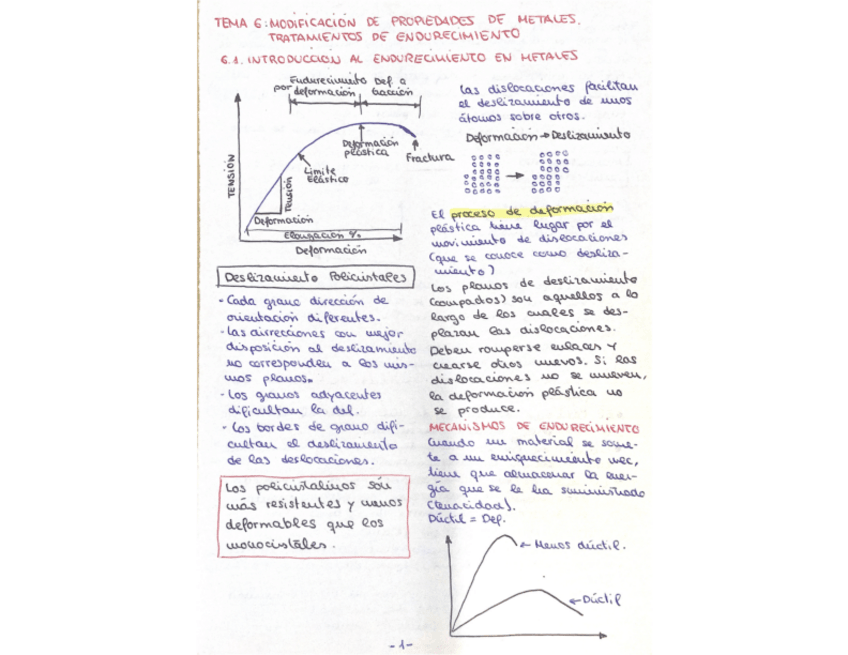 TEMA 6: MODIFICACIÓN DE PROPIEDADES DE METALES.
TRATAMIENTOS DE ENDURECIMIENTO
6.1. INTRODUCCIÓN AL ENDURECIMIENTO EN METALES
Endurecimiento Def. a
por deformación tracción
TENSIÓN
Deformación
plástica
Fractura
Límite
Elástico
Tensión
Deformación
Elongación %
Deformación
Deslizamiento Policristales
- Cada grano dirección de
orientación diferentes.
- Las direcciones con mejor
disposición al deslizamiento
no corresponden a los mis-
mos planos.
- Los granos adyacentes
dificultan la def.
- Los bordes de grano difi-
cultan el deslizamiento
de las deslocaciones.
Los policristalinos son
más resistentes y menos
deformables que los
monocristales.
Las dislocaciones facilitan
el deslizamiento de unos
átomos sobre otros.
Deformación → Deslizamiento
El proceso de deformación
plástica tiene lugar por el
movimiento de dislocaciones
(que se conoce como desliza-
miento)
Los planos de deslizamiento
(compactos) son aquellos a lo
largo de los cuales se des-
plazan las dislocaciones.
Deben romperse enlaces y
crearse otros nuevos. Si las
dislocaciones no se mueven,
la deformación plástica no
se produce.
MECANISMOS DE ENDURECIMIENTO
Cuando un material se some-
te a un enriquecimiento mec,
tiene que almacenar la ener-
gía que se le ha suministrado
(tenacidad).
Dúctil = Def.
← Menos dúctil.
← Dúctil
-1-